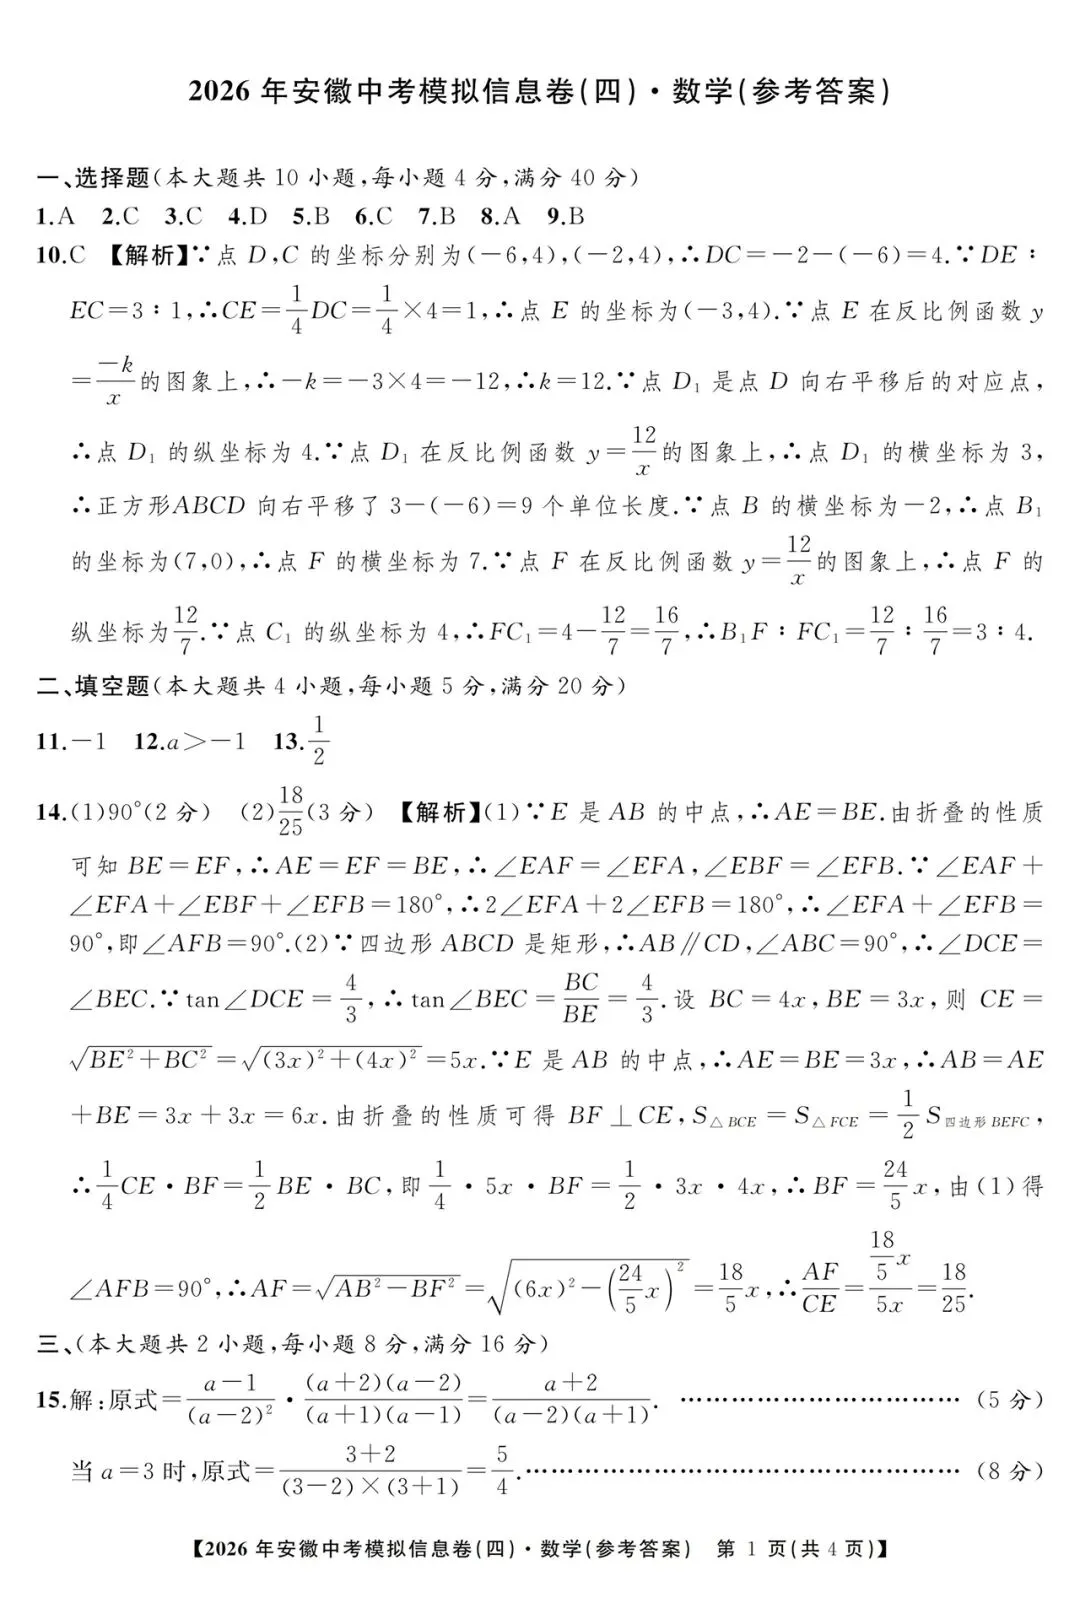 2026年安徽中考模拟信息卷(四)·数学(参考答案)
一、选择题(本大题共10小题,每小题4分,满分40分)
1.A 2.C 3.C 4.D 5.B 6.C 7.B 8.A 9.B
10.C 【解析】∵点D,C的坐标分别为(-6,4),(-2,4),∴DC=-2-(-6)=4.∵DE∶
EC=3∶1,∴CE=1/4DC=1/4×4=1,∴点E的坐标为(-3,4).∵点E在反比例函数y
=-k/x的图象上,∴-k=-3×4=-12,∴k=12.∵点D₁是点D向右平移后的对应点,
∴点D₁的纵坐标为4.∵点D₁在反比例函数y=12/x的图象上,∴点D₁的横坐标为3,
∴正方形ABCD向右平移了3-(-6)=9个单位长度.∵点B的横坐标为-2,∴点B₁
的坐标为(7,0),∴点F的横坐标为7.∵点F在反比例函数y=12/x的图象上,∴点F的
纵坐标为12/7.∵点C₁的纵坐标为4,∴FC₁=4-12/7=16/7,∴B₁F∶FC₁=12/7∶16/7=3∶4.
二、填空题(本大题共4小题,每小题5分,满分20分)
11.-1 12.a>-1 13.1/2
14.(1)90°(2分) (2)18/25(3分) 【解析】(1)∵E是AB的中点,∴AE=BE.由折叠的性质
可知BE=EF,∴AE=EF=BE,∴∠EAF=∠EFA,∠EBF=∠EFB.∵∠EAF+
∠EFA+∠EBF+∠EFB=180°,∴2∠EFA+2∠EFB=180°,∴∠EFA+∠EFB=
90°,即∠AFB=90°.(2)∵四边形ABCD是矩形,∴AB∥CD,∠ABC=90°,∴∠DCE=
∠BEC.∵tan∠DCE=4/3,∴tan∠BEC=BC/BE=4/3.设BC=4x,BE=3x,则CE=
√(BE²+BC²)=√((3x)²+(4x)²)=5x.∵E是AB的中点,∴AE=BE=3x,∴AB=AE
+BE=3x+3x=6x.由折叠的性质可得BF⊥CE,S△BCE=S△FCE=1/2S四边形BEFC,
∴1/4CE·BF=1/2BE·BC,即1/4·5x·BF=1/2·3x·4x,∴BF=24/5x,由(1)得
∠AFB=90°,∴AF=√(AB²-BF²)=√((6x)²-(24/5x)²)=18/5x,∴AF/CE=(18/5x)/(5x)=18/25.
三、(本大题共2小题,每小题8分,满分16分)
15.解:原式=(a-1)/(a-2)²·(a+2)(a-2)/(a+1)(a-1)=(a+2)/(a-2)(a+1). ……………………………(5分)
当a=3时,原式=(3+2)/((3-2)×(3+1))=5/4.……………………………………………(8分)
【2026年安徽中考模拟信息卷(四)·数学(参考答案) 第1页(共4页)】